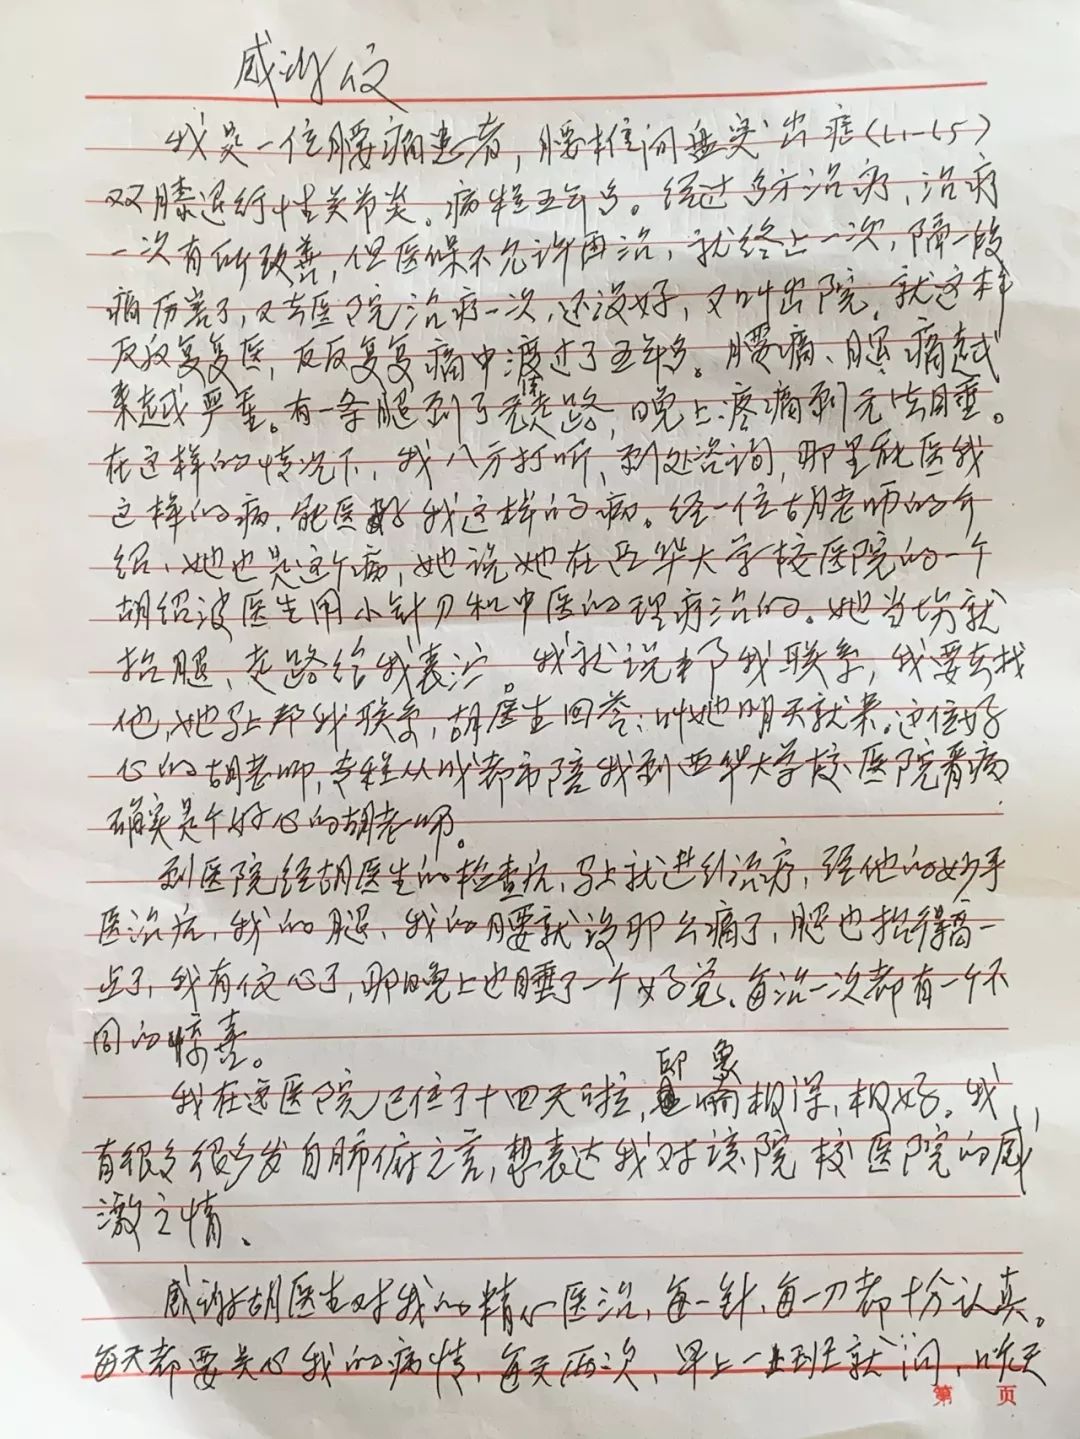 感谢信
我是一位腰痛患者，腰椎间盘突出症（L1-L5）
双膝退行性关节炎。病程五年多。经过多方治疗，治疗
一次有所改善，但医保不允许再治，就终止一次，隔一段
痛厉害了，又去医院治疗一次，还没好，又叫出院，就这样
反反复复医，反反复复痛中渡过了五年多。腰痛、腿痛越
来越严重。有一条腿到了走路，晚上疼痛到无法睡。
在这样的情况下，我八方打听，到处咨询，那里能医我
这样的病，能医好我这样的病。经一位胡老师的介
绍、她也是这个病，她说她在西华大学校医院的一个
胡绍波医生用小针刀和中医的理疗治的。她当场就
抬腿、走路给我表演。我就说帮我联系，我要去找
他，她马上帮我联系，胡医生回答：叫她明天就来。这位好
心的胡老师，专程从成都市陪我到西华大学校医院看病
确实是个好心的胡老师。
到医院经胡医生的检查后，马上就进行治疗，经他的妙手
医治后，我的腿、我的腰就没那么痛了，腿也抬得高一
点了，我有信心了，那晚上也睡了一个好觉、每治一次都有一个不
同的惊喜。
我在这医院已住了十四天啦，印象极深，极好。我
有很多很多发自肺俯之言，想表达我对该院校医院的感
激之情、
感谢胡医生对我的精心医治，每一针、每一刀都十分认真。
每天都要关心我的病情，每天两次，早上一上班就问，昨天
第 页